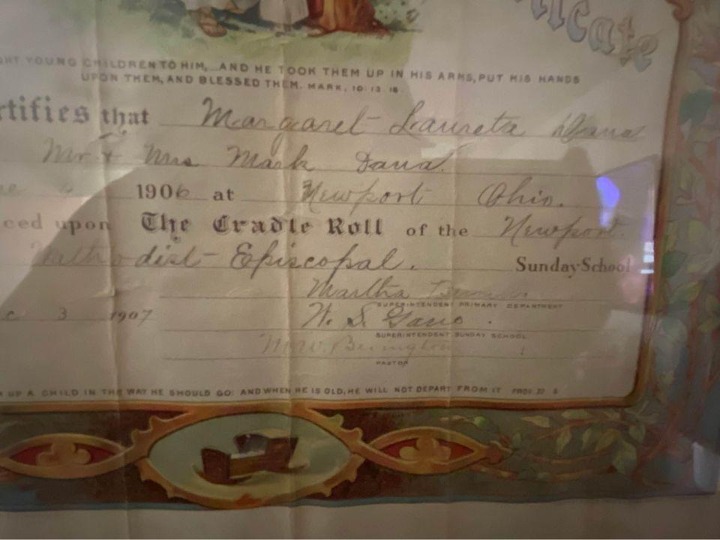 icate
YOUNG CHILDREN TO HIM, AND HE TOOK THEM UP IN HIS ARMS, PUT HIS HANDS
UPON THEM, AND BLESSED THEM. MARK, 10:13 16.
rtifies that Margaret Laureta Dana
Mr + Mrs Mark Dana
1906 at Newport Ohio.
ced upon The Cradle Roll of the Newport
Methodist Episcopal. Sunday School
Martha
SUPERINTENDENT PRIMARY DEPARTMENT
3 1907 W. S.
SUPERINTENDENT SUNDAY SCHOOL
PASTOR
UP A CHILD IN THE WAY HE SHOULD GO: AND WHEN HE IS OLD, HE WILL NOT DEPART FROM IT PROV.